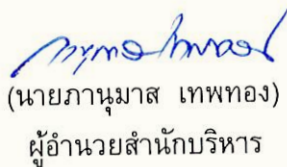 (นายภานุมาส เทพทอง)
ผู้อำนวยสำนักบริหาร